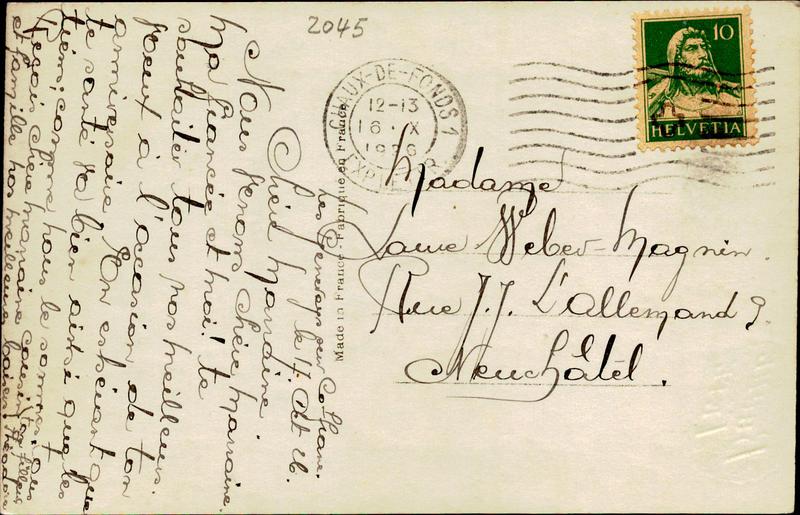 2045
10
HELVETIA
CHAUX-DE-FONDS 1
12-13
16. X
1926
EXP. LE
Made in France - Fabriqué en France
Madame
Laure Weber-Magnin.
Rue J.J. L'allemand 9
Neuchâtel.
Les Geneveys sur Coffrane.
le 17. Oct 26.
Chère Marraine
Nous venons chère Marraine
ma fiancée et moi te
souhaiter tous nos meilleurs
veux à l'occasion de ton
anniversaire. En espérant que
te santé va bien ainsi que les
tiens; comme nous le sommes aussi
Reçois chère marraine cousin
et famille nos meilleurs baisers